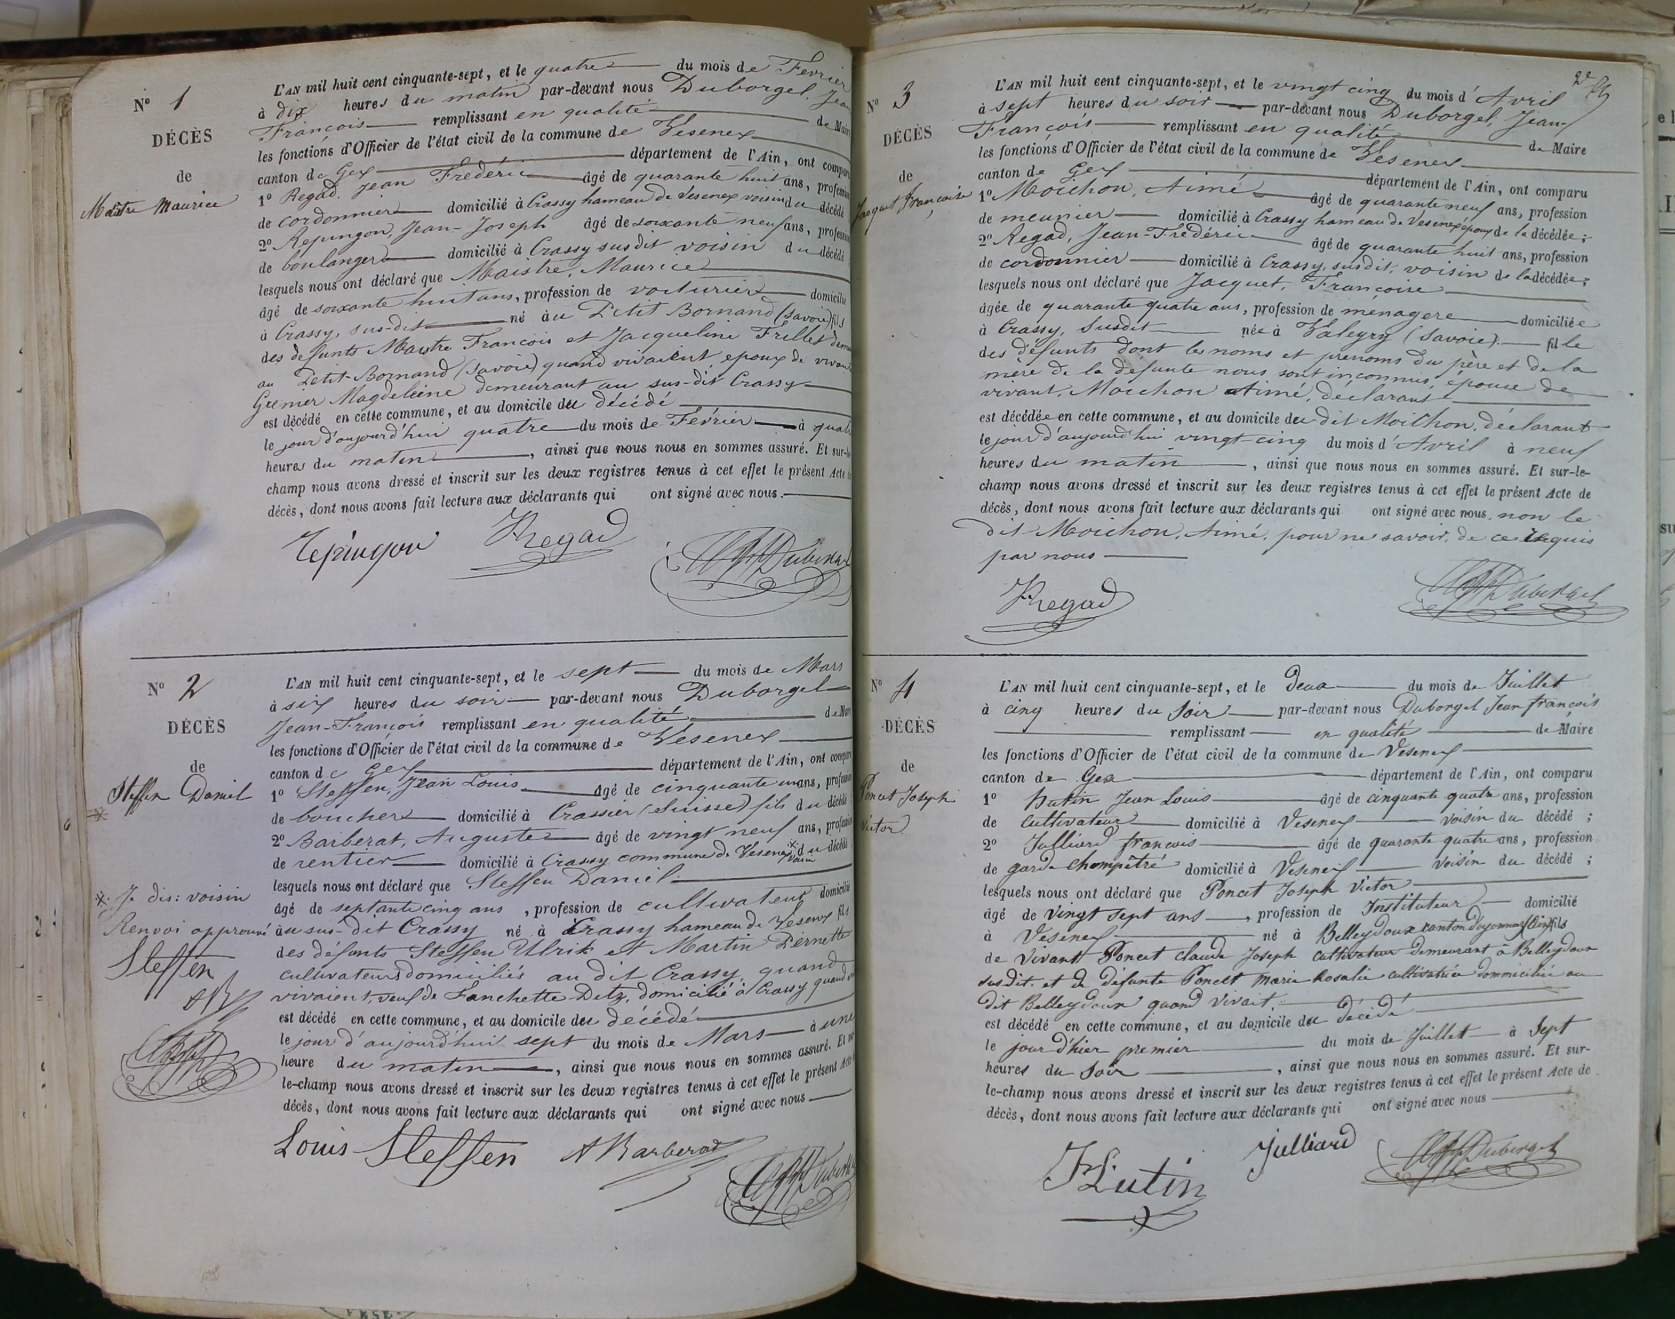 N° 1
DÉCÈS
de
Maistre Maurice
L'AN mil huit cent cinquante-sept, et le quatre du mois de Fevrier
à dix heures du matin par-devant nous Duborgel, Jean
François remplissant en qualité de Maire
les fonctions d'Officier de l'état civil de la commune de Vesenex
canton de Gex département de l'Ain, ont comparu
1° Regad, Jean Frédéric âgé de quarante huit ans, profession
de cordonnier domicilié à Crassy hameau de Vesenex voisin du décédé
2° Rejungon, Jean-Joseph âgé de soixante neuf ans, profession
de boulanger domicilié à Crassy susdit voisin du décédé
lesquels nous ont déclaré que Maistre, Maurice
âgé de soixante huit ans, profession de voiturier domicilié
à Crassy, sus-dit né au Petit Bornand (Savoie) fils
des défunts Maistre François et Jacqueline Frillet
au Petit-Bornand (Savoie) quand vivaient epoux de vivante
Grenier Magdeleine demeurant au sus-dit Crassy
est décédé en cette commune, et au domicile du décédé
le jour d'aujourd'hui quatre du mois de Février à quatre
heures du matin, ainsi que nous nous en sommes assuré. Et sur-le-
champ nous avons dressé et inscrit sur les deux registres tenus à cet effet le présent Acte de
décès, dont nous avons fait lecture aux déclarants qui ont signé avec nous.
Regad
Duborgel
N° 2
DÉCÈS
de
Steffen Daniel
L'AN mil huit cent cinquante-sept, et le sept du mois de Mars
à six heures du soir par-devant nous Duborgel
Jean-François remplissant en qualité de Maire
les fonctions d'Officier de l'état civil de la commune de Vesenex
canton de Gex département de l'Ain, ont comparu
1° Steffen, Jean Louis âgé de cinquante un ans, profession
de boucher domicilié à Crassier (Suisse) fils du décédé
2° Barberat, Auguste âgé de vingt neuf ans, profession
de rentier domicilié à Crassy commune de Vesenex du décédé
lesquels nous ont déclaré que Steffen Daniel
âgé de septante cinq ans, profession de cultivateur domicilié
au sus-dit Crassy né à Crassy hameau de Vesenex fils
des défunts Steffen Ulrik et Martin Pernette
cultivateurs domiciliés au dit Crassy quand
vivaient, veuf de Fanchette Detz, domicilié à Crassy quand
est décédé en cette commune, et au domicile du décédé
le jour d'aujourd'hui sept du mois de Mars à une
heure du matin, ainsi que nous nous en sommes assuré. Et sur-
le-champ nous avons dressé et inscrit sur les deux registres tenus à cet effet le présent Acte de
décès, dont nous avons fait lecture aux déclarants qui ont signé avec nous
* Je dis: voisin
Renvoi approuvé
Steffen
AB
Louis Steffen ABarberat Duborgel
2e
N° 3
DÉCÈS
de
Jacquet Françoise
L'AN mil huit cent cinquante-sept, et le vingt cinq du mois d'Avril
à sept heures du soir par-devant nous Duborgel, Jean-
François remplissant en qualité de Maire
les fonctions d'Officier de l'état civil de la commune de Vesenex
canton de Gex département de l'Ain, ont comparu
1° Moichon, Aimé âgé de quarante neuf ans, profession
de meunier domicilié à Crassy hameau de Vesenex époux de la décédée;
2° Regad, Jean-Frédéric âgé de quarante huit ans, profession
de cordonnier domicilié à Crassy, susdit, voisin de la décédée;
lesquels nous ont déclaré que Jacquet, Françoise
âgée de quarante quatre ans, profession de ménagère domiciliée
à Crassy, Susdit née à (Savoie) fille
des défunts dont les noms et prénoms du père et de la
mère de la défunte nous sont inconnus, épouse de
vivant, Moichon Aimé, déclarant
est décédée en cette commune, et au domicile du dit Moichon, déclarant
le jour d'aujourd'hui vingt cinq du mois d'Avril à neuf
heures du matin, ainsi que nous nous en sommes assuré. Et sur-le-
champ nous avons dressé et inscrit sur les deux registres tenus à cet effet le présent Acte de
décès, dont nous avons fait lecture aux déclarants qui ont signé avec nous, non le
dit Moichon, Aimé, pour ne savoir, de ce requis
par nous
Regad
Duborgel
N° 4
DÉCÈS
de
Poncet Joseph
Victor
L'AN mil huit cent cinquante-sept, et le Deux du mois de Juillet
à cinq heures du Soir par-devant nous Duborgel Jean françois
remplissant en qualité de Maire
les fonctions d'Officier de l'état civil de la commune de Vesenex
canton de Gex département de l'Ain, ont comparu
1° hutin Jean Louis âgé de cinquante quatre ans, profession
de Cultivateur domicilié à Vesenex voisin du décédé;
2° Julliard françois âgé de quarante quatre ans, profession
de garde champêtre domicilié à Vesenex voisin du décédé;
lesquels nous ont déclaré que Poncet Joseph Victor
âgé de vingt sept ans, profession de Instituteur domicilié
à Vesenex né à Belleydoux canton d'oyonnax (Ain) fils
de Vivant Poncet Claude Joseph Cultivateur demeurant à Belleydoux
susDit. et de Défunte Poncet Marie Rosalie cultivatrice dommiciliée au
dit Belleydoux quand Vivait.
est décédé en cette commune, et au domicile du décédé
le jour d'hier premier du mois de Juillet à Sept
heures du Soir, ainsi que nous nous en sommes assuré. Et sur-
le-champ nous avons dressé et inscrit sur les deux registres tenus à cet effet le présent Acte de
décès, dont nous avons fait lecture aux déclarants qui ont signé avec nous
Julliard
Duborgel